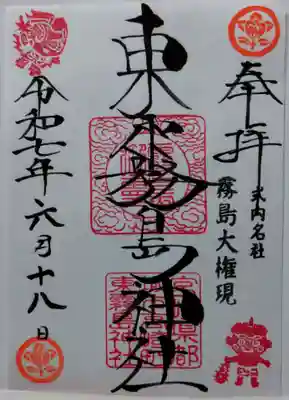 奉拝
式内名社
霧島大権現
東霧島神社
令和七年六月十八日
宮崎県都
東霧島神社